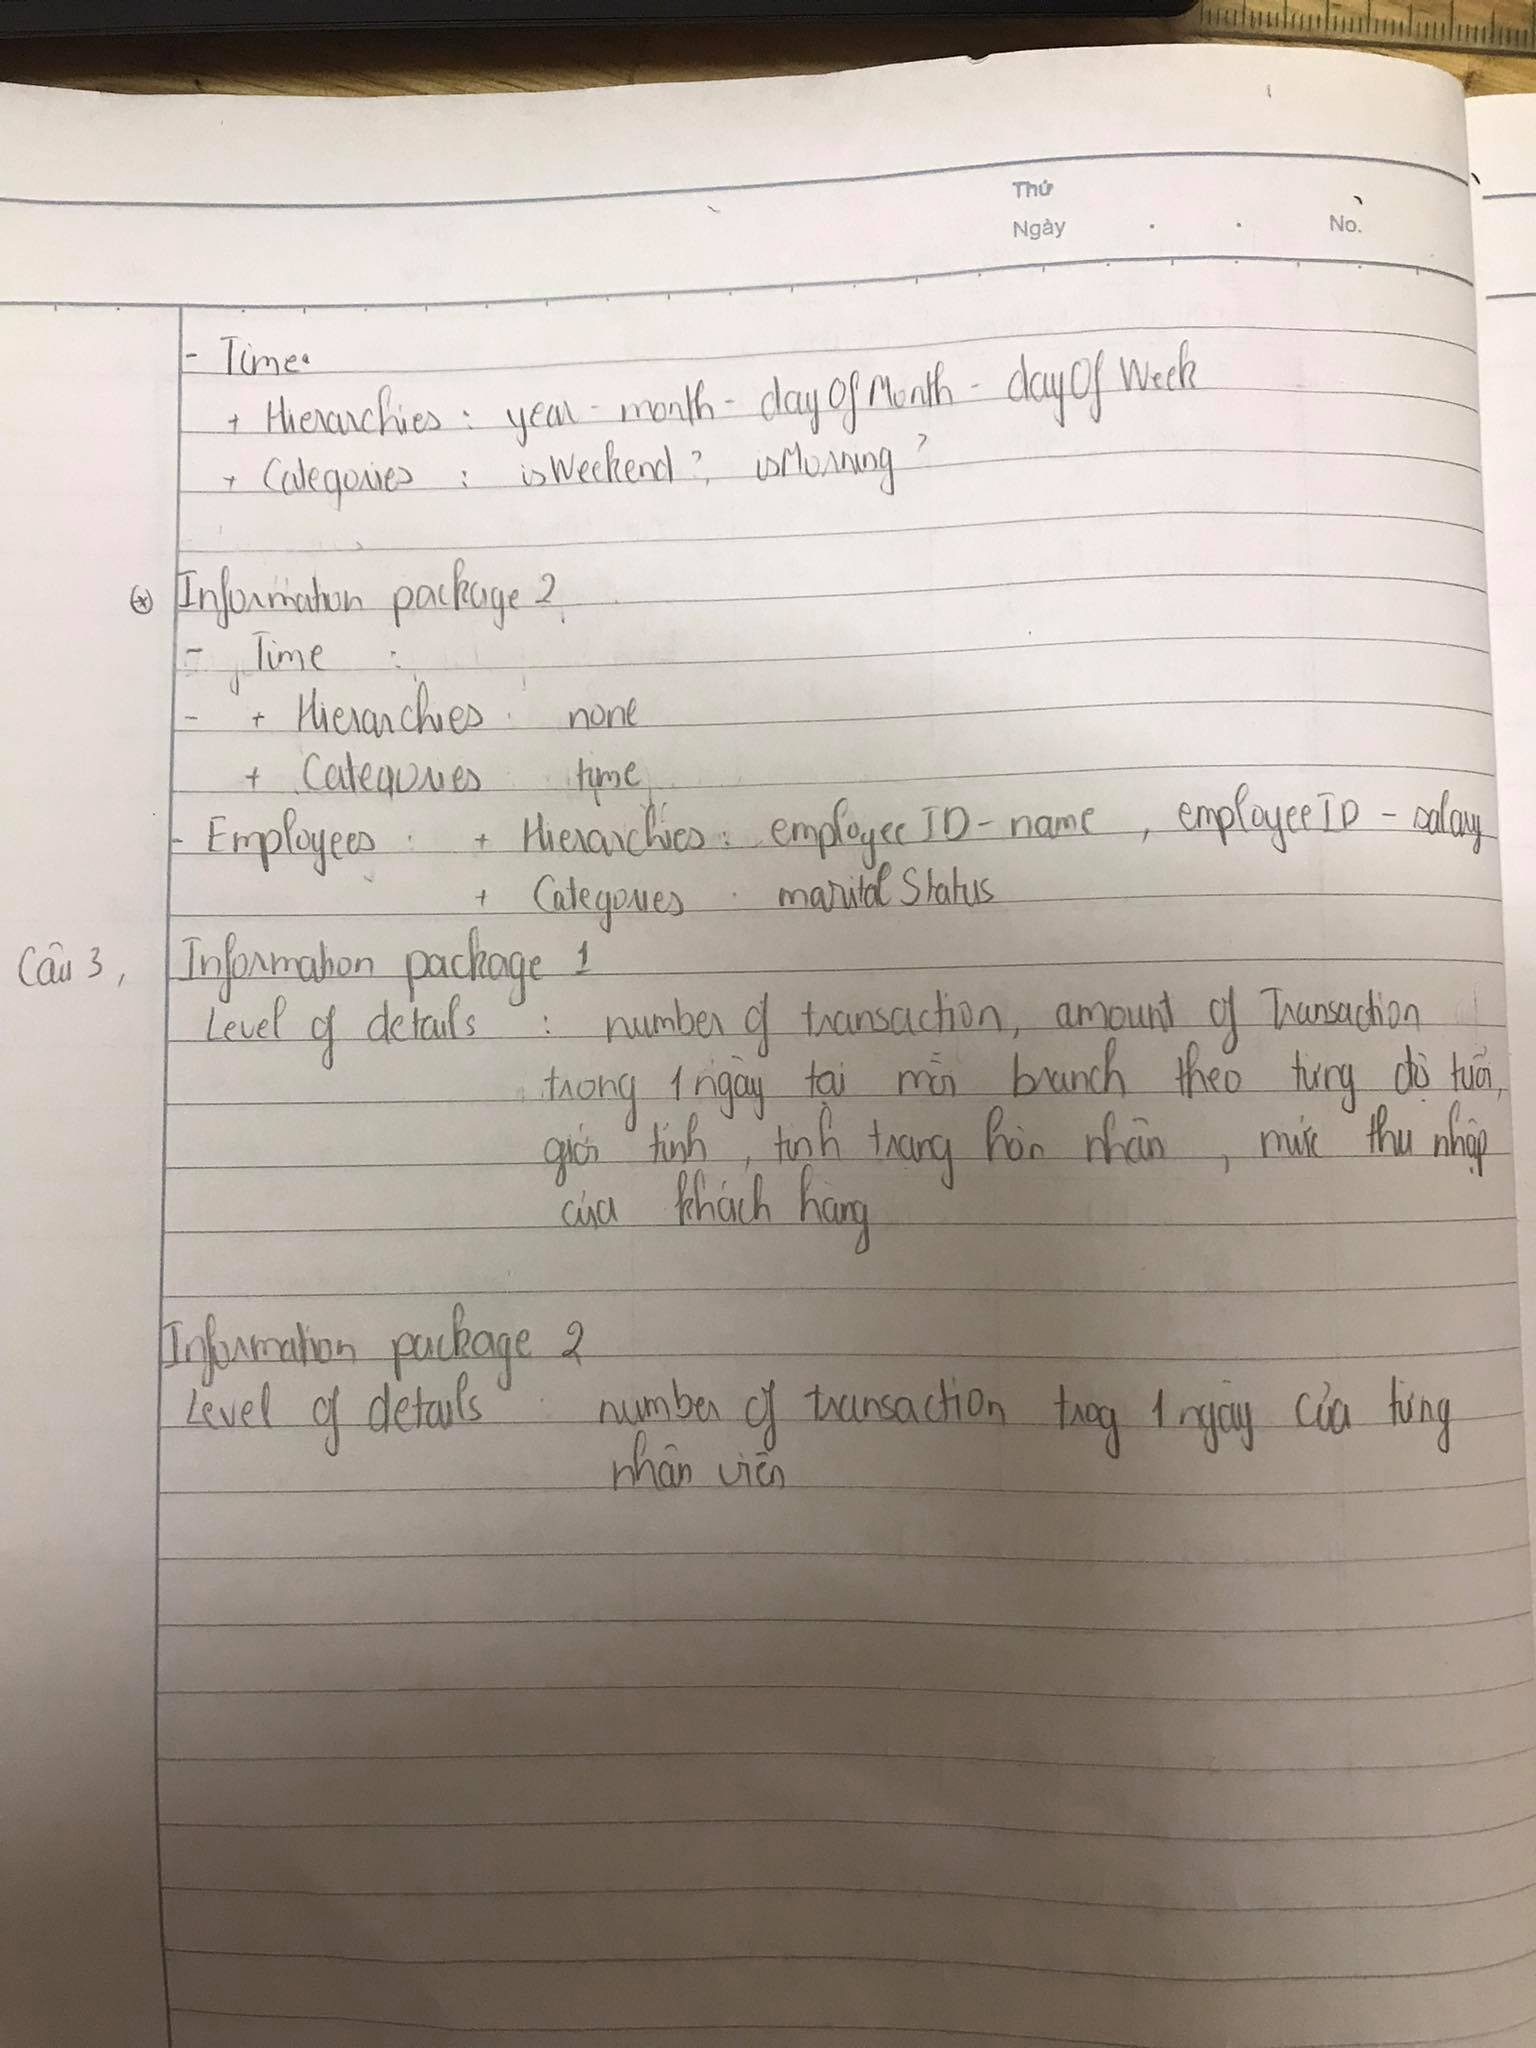 Thứ
Ngày No.
- Time.
+ Hierarchies : year - month - dayOfMonth - dayOf Week
+ Categories : isWeekend?, isMorning?
(*) Information package 2
- Time :
- + Hierarchies : none
+ Categories time
- Employees : + Hierarchies : employeeID - name , employeeID - salary
+ Categories : marital Status
Câu 3, Information package 1
Level of details : number of transaction, amount of Transaction
trong 1 ngày tại mỗi branch theo từng độ tuổi,
giới tính , tình trạng hôn nhân , mức thu nhập
của khách hàng
Information package 2
Level of details : number of transaction trog 1 ngày của từng
nhân viên